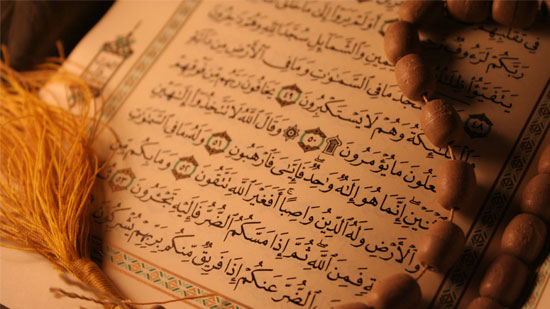 فِي تَقَلُّبِهِمْ
رَبَّكُمْ لَرَءُوفٌ ... أَوَلَمْ يَرَوْا۟ إِلَىٰ مَا خَلَقَ
يَتَفَيَّؤُا۟ ظِلَٰلُهُۥ عَنِ ٱلْيَمِينِ وَٱلشَّمَآئِلِ سُجَّدًا لِّلَّهِ وَهُمْ دَٰخِرُونَ ٤٨
يَسْجُدُ مَا فِي ٱلسَّمَٰوَٰتِ وَمَا فِي ٱلْأَرْضِ مِن دَآبَّةٍ
وَٱلْمَلَٰٓئِكَةُ وَهُمْ لَا يَسْتَكْبِرُونَ ٤٩ يَخَافُونَ رَبَّهُم مِّن فَوْقِهِمْ
وَيَفْعَلُونَ مَا يُؤْمَرُونَ ۩ ٥٠ وَقَالَ ٱللَّهُ لَا تَتَّخِذُوٓا۟ إِلَٰهَيْنِ
ٱثْنَيْنِ إِنَّمَا هُوَ إِلَٰهٌ وَٰحِدٌ فَإِيَّٰيَ فَٱرْهَبُونِ ٥١ وَلَهُۥ مَا فِي ٱلسَّمَٰوَٰتِ
وَٱلْأَرْضِ وَلَهُ ٱلدِّينُ وَاصِبًا أَفَغَيْرَ ٱللَّهِ تَتَّقُونَ ٥٢ وَمَا بِكُم مِّن
فَمِنَ ٱللَّهِ ثُمَّ إِذَا مَسَّكُمُ ٱلضُّرُّ فَإِلَيْهِ تَجْـَٔرُونَ ٥٣
ٱلضُّرَّ عَنكُمْ إِذَا فَرِيقٌ مِّنكُم بِرَبِّهِمْ يُشْرِكُونَ